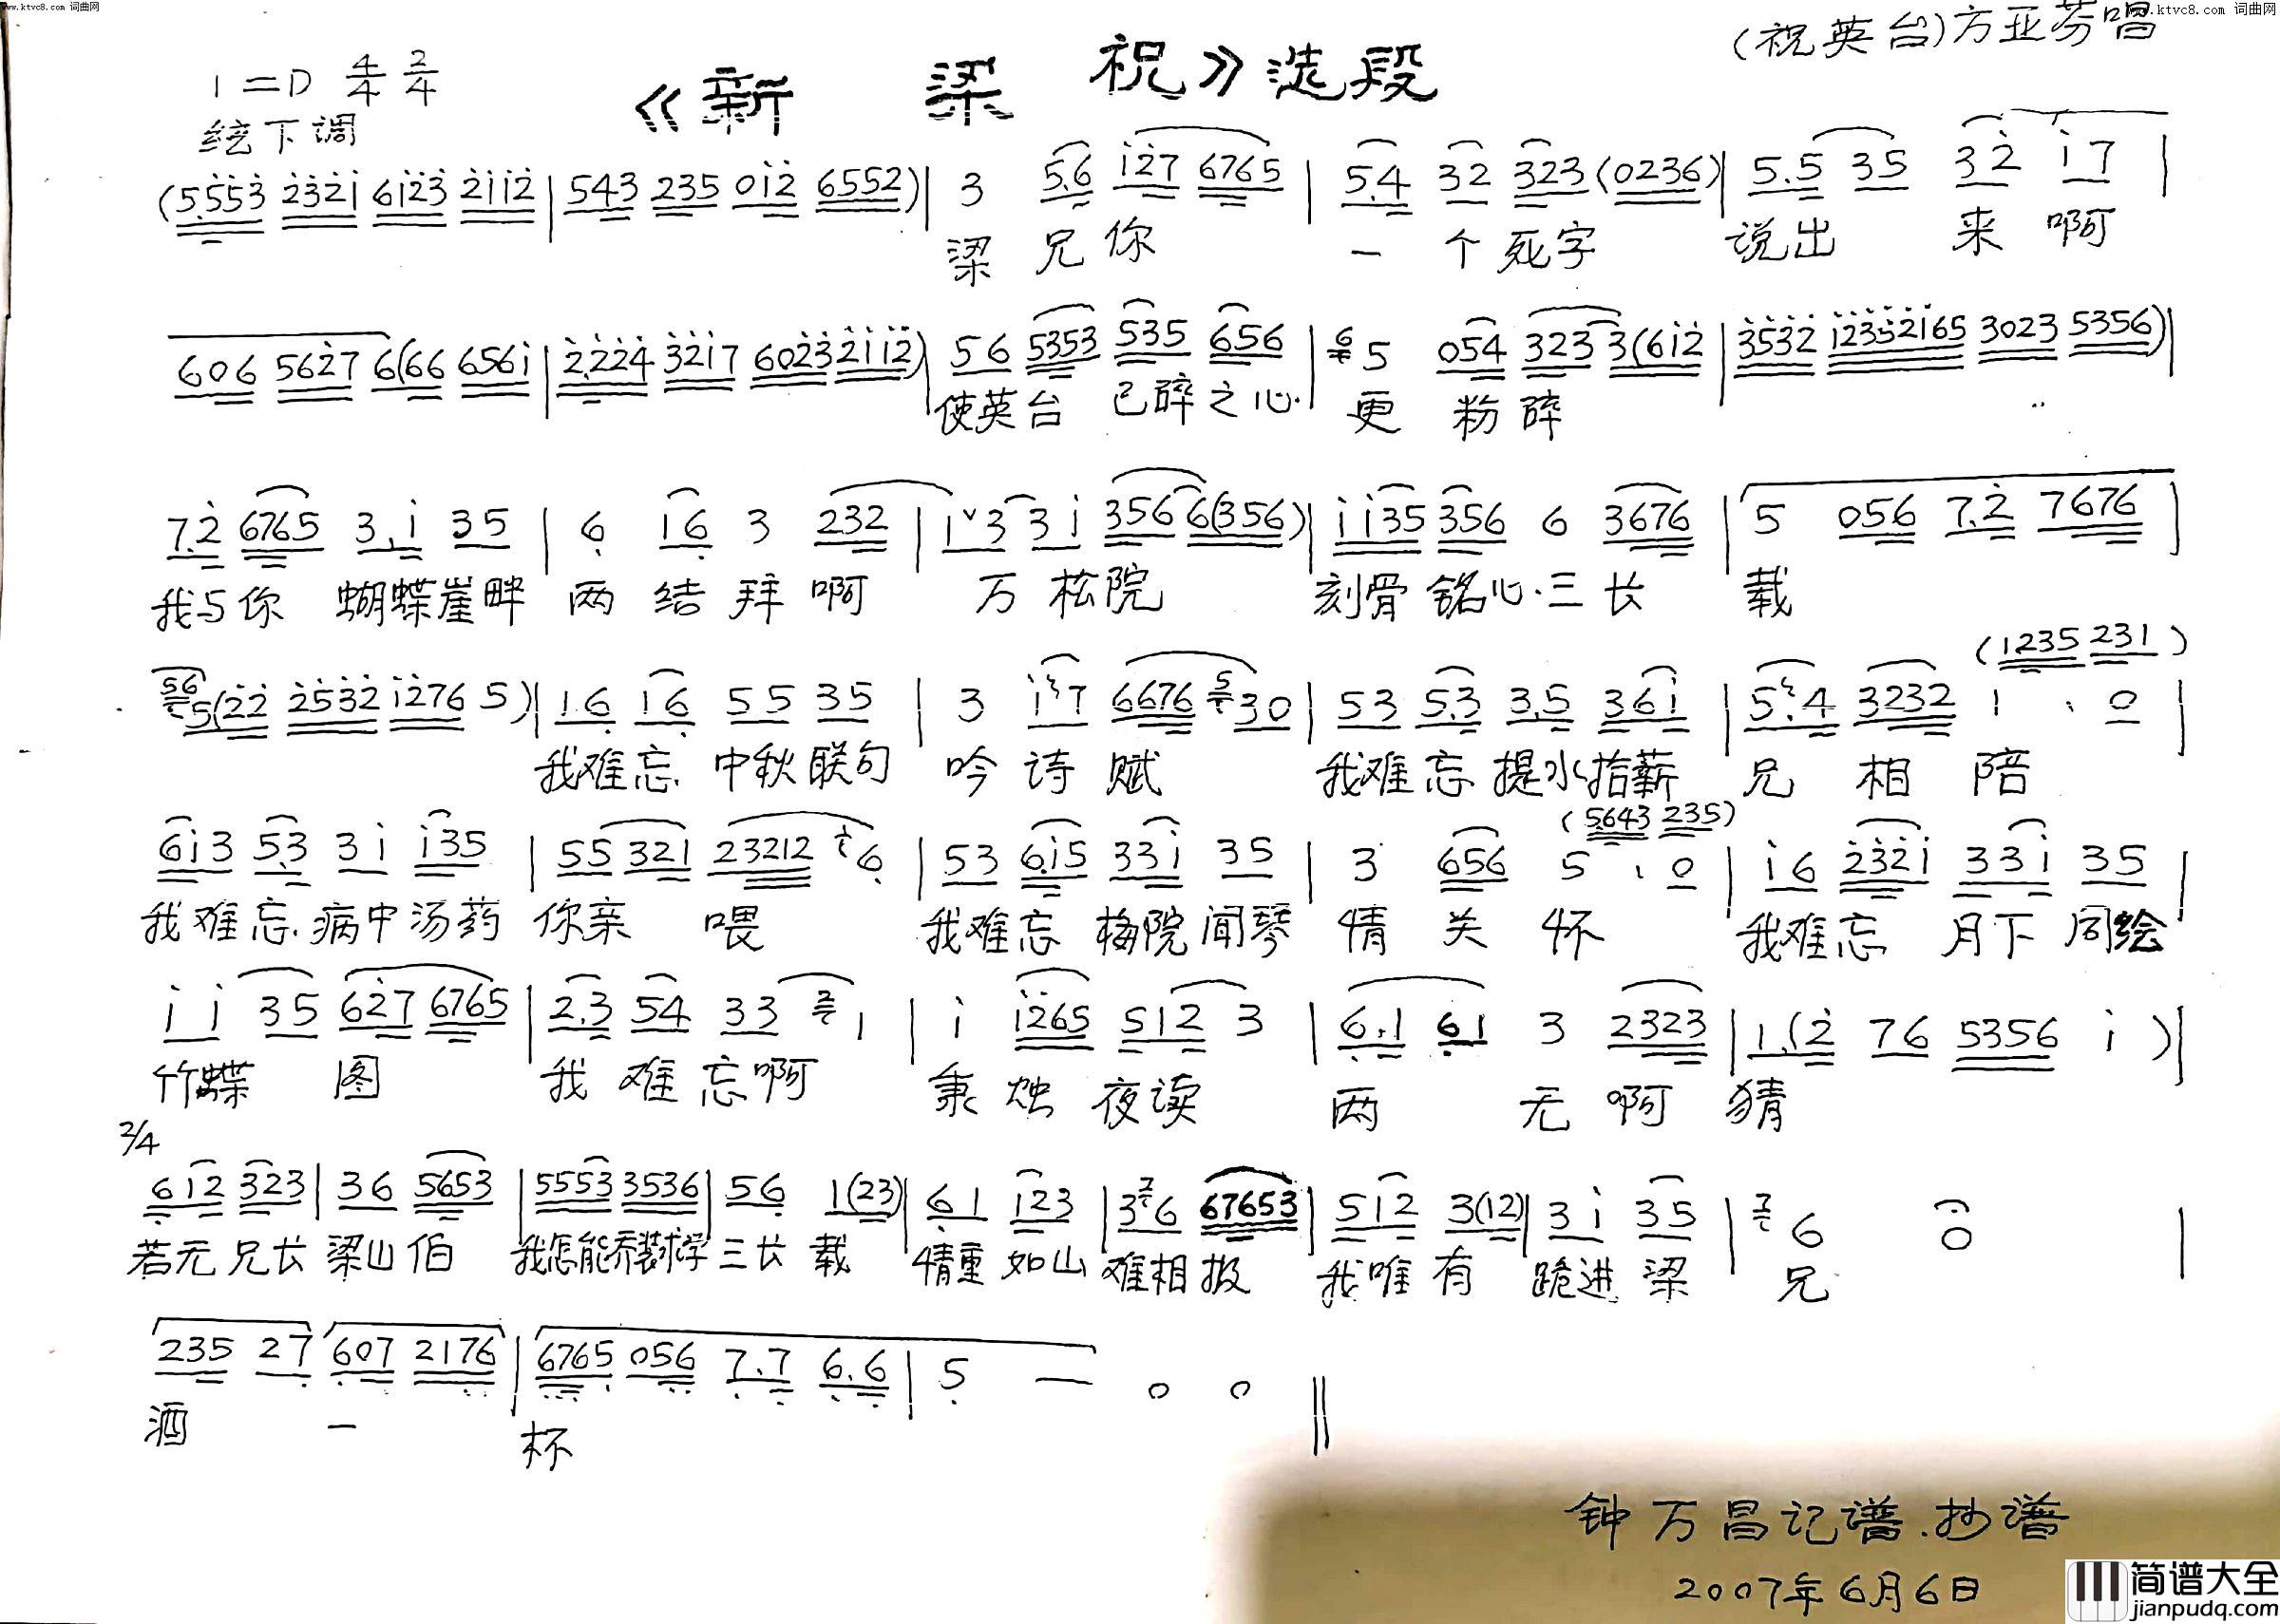 www.ktvc8.com 词曲网
www.ktvc8.com 词曲网
(祝英台)方亚芬唱
1=D 4/4 2/4
《新 梁 祝》选段
弦下调
(5.553 2321 6123 2112 | 543 235 012 6552) | 3 5.6 127 6765 | 5.4 32 323 (0236) | 5.5 35 32 17 |
梁 兄 你 一 个 死 字 说 出 来 啊
606 5627 6(66 6561 | 2.224 3217 6023 2112) | 56 5353 535 656 | 5 054 3233 3(612 | 3532 12352165 3023 5356) |
使英台 已碎之心. 更 粉 碎
7.2 6765 3.1 35 | 6 16 3 232 | 1 3 31 3566 6(356) | 1135 356 6 3676 | 5 056 7.2 7676
我与你 蝴蝶崖畔 两 结 拜 啊 万 松院 刻骨 铭心.三 长 载
(1235 231)
56 5(22 2532 1276 5) | 1.6 16 55 35 | 3 17 6676 5 30 | 53 5.3 3.5 361 | 5.4 3232 1 . 0 |
我难忘. 中秋联句 吟 诗 赋 我难忘 提水拾薪 兄 相 陪
(5643 235)
613 5.3 31 135 | 55 321 23212 6 | 53 6.15 331 35 | 3 656 5 . 0 | 16 2321 331 35 |
我难忘.病中汤药 你亲 喂 我难忘 梅院闻琴 情 关 怀 我难忘 月下同绘
11 35 627 6765 | 2.3 54 33 2 1 | 1 1265 512 3 | 6.1 61 3 2323 | 1.(2 76 5356 1) |
竹蝶 图 我 难 忘啊 秉 烛 夜读 两 无 啊 猜
2/4
612 323 | 36 5653 | 5553 3536 | 56 1(23) | 61 123 | 3 2 6 67653 | 512 3(12) | 31 35 | 7 6 0 |
若无兄长 梁山伯 我怎能乔装求学 三长 载 情重 如山 难相报 我唯有 跪进 梁 兄
235 27 607 2176 | 6765 056 7.7 6.6 | 5 — 0 0 ‖
酒 一 杯
钟万昌记谱.抄谱
2007年6月6日
简谱大全
jianpudq.com